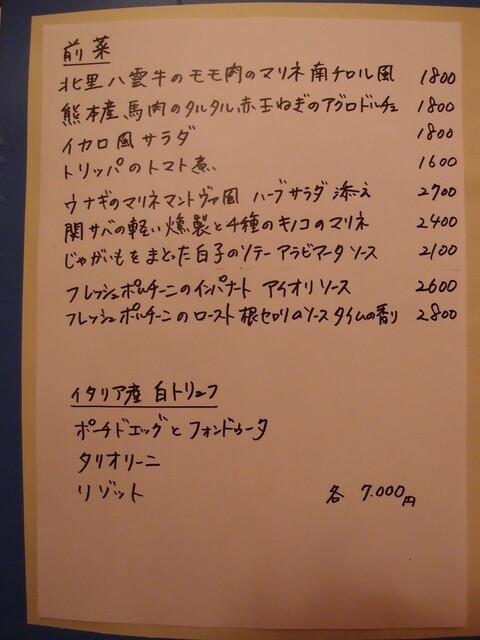 前菜
北里八雲牛のモモ肉のマリネ南チロル風 1800
熊本産馬肉のタルタル赤玉ねぎのアグロドルチェ 1800
イカロ風サラダ 1800
トリッパのトマト煮 1600
ウナギのマリネマントヴァ風 ハーブサラダ添え 2700
関サバの軽い燻製と4種のキノコのマリネ 2400
じゃがいもをまとった白子のソテー アラビアータソース 2100
フレッシュポルチーニのインパナート アイオリソース 2600
フレッシュポルチーニのロースト 根セロリのソースタイムの香り 2800
イタリア産 白トリュフ
ポーチドエッグとフォンドゥータ
タリオリーニ
リゾット 各 7.000円